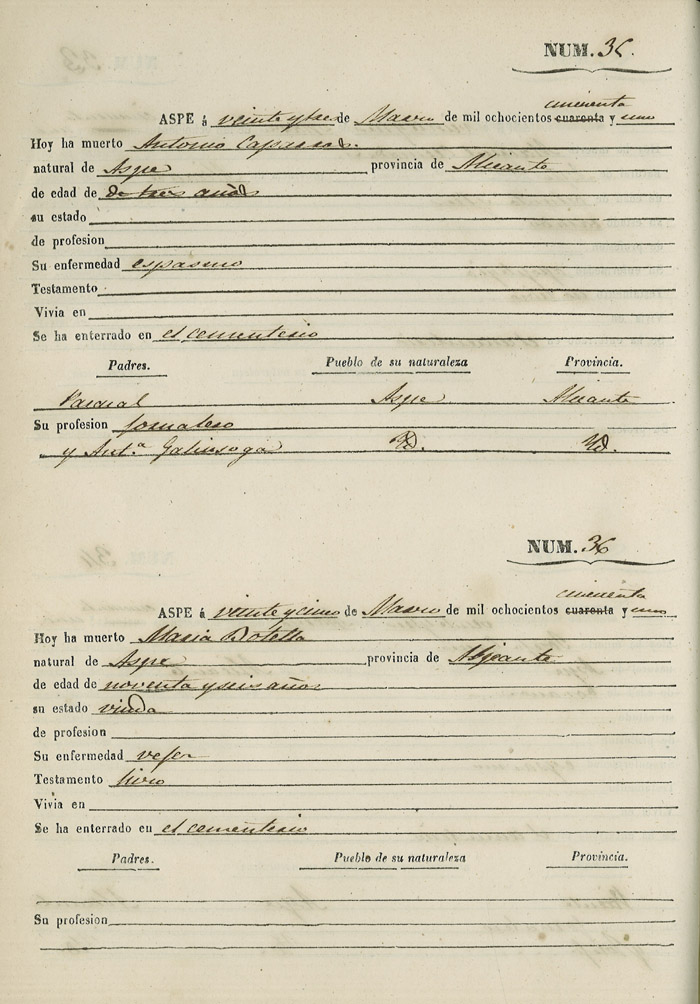 NUM. 35.
cincuenta
ASPE á veinte y tres de Marzo de mil ochocientos cuarenta y uno
Hoy ha muerto Antonio
natural de Aspe provincia de Alicante
de edad de de tres años
su estado
de profesion
Su enfermedad espasmo
Testamento
Vivia en
Se ha enterrado en el cementerio
Padres. Pueblo de su naturaleza Provincia.
Pascual Aspe Alicante
Su profesion jornalero
y Ant.ª Galinsoga Yd. Yd.
NUM. 36
cincuenta
ASPE á veinte y cinco de Marzo de mil ochocientos cuarenta y uno
Hoy ha muerto Maria Botella
natural de Aspe provincia de Alicante
de edad de noventa y seis años
su estado viuda
de profesion
Su enfermedad vejez
Testamento hizo
Vivia en
Se ha enterrado en el cementerio
Padres. Pueblo de su naturaleza Provincia.
Su profesion